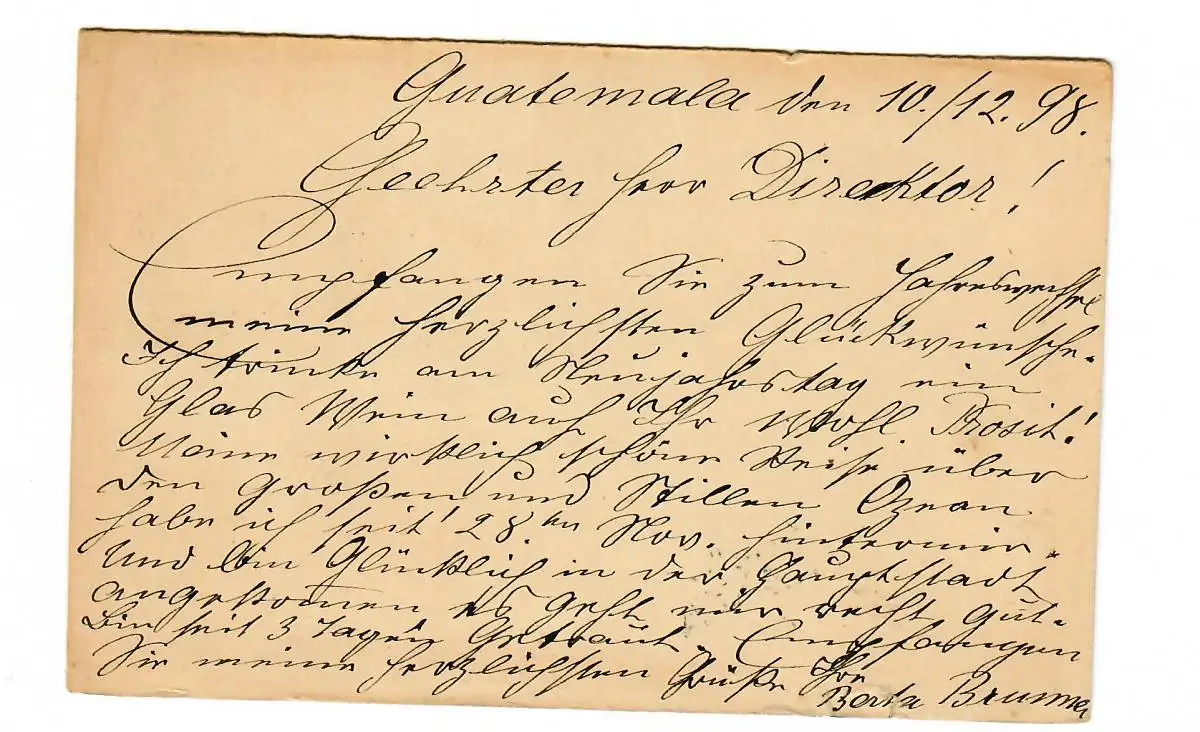 Guatemala den 10./12. 98.
Geehrter Herr Direktor!
Empfangen Sie zum Jahreswechsel
meine herzlichsten Glückwünsche.
Ich trinke am Neujahrstag ein
Glas Wein auf Ihr Wohl. Prosit!
Meine wirklich schöne Reise über
den Großen und Stillen Ozean
habe ich seit 28.ten Nov. hintermir.
Und bin Glücklich in der Hauptstadt
angekomen es geht mir recht gut.
Bin seit 3 Tagen Getraut. Empfangen
Sie meine herzlichsten Grüße Ihre
Berta Brunner